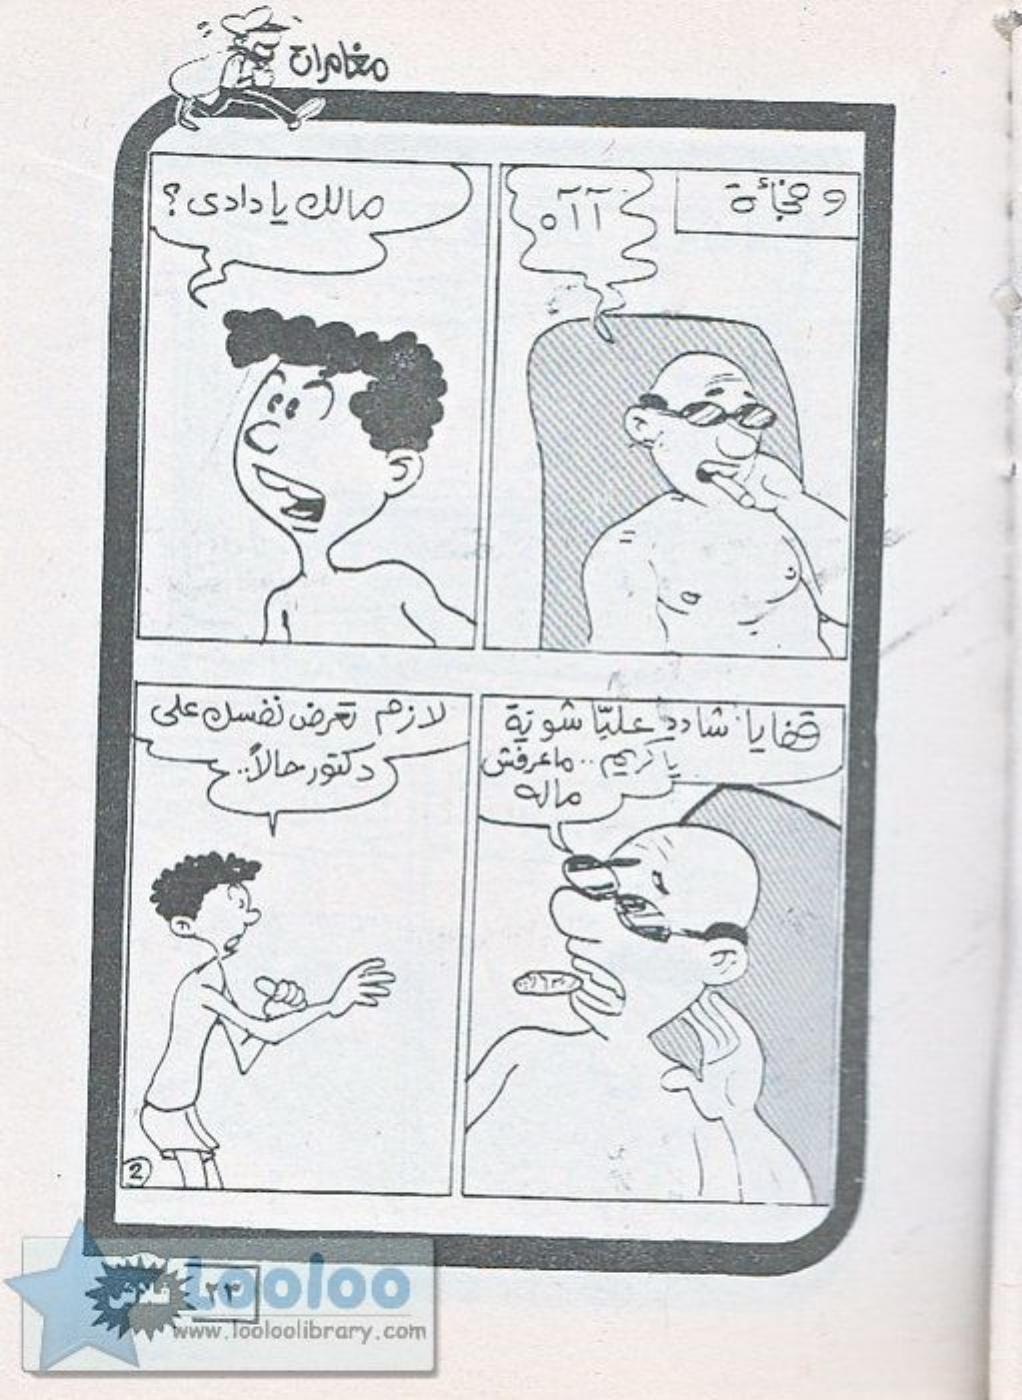 مغامرات
و فجأة
آ آ ه
مالك يا دادى ؟
قفايا شادد عليّا شوية
يا كريم .. ماعرفش
ماله
لازم تعرض نفسك على
دكتور حالاً ..
2
فلاش
٢٣
Looloo
www.looloolibrary.com